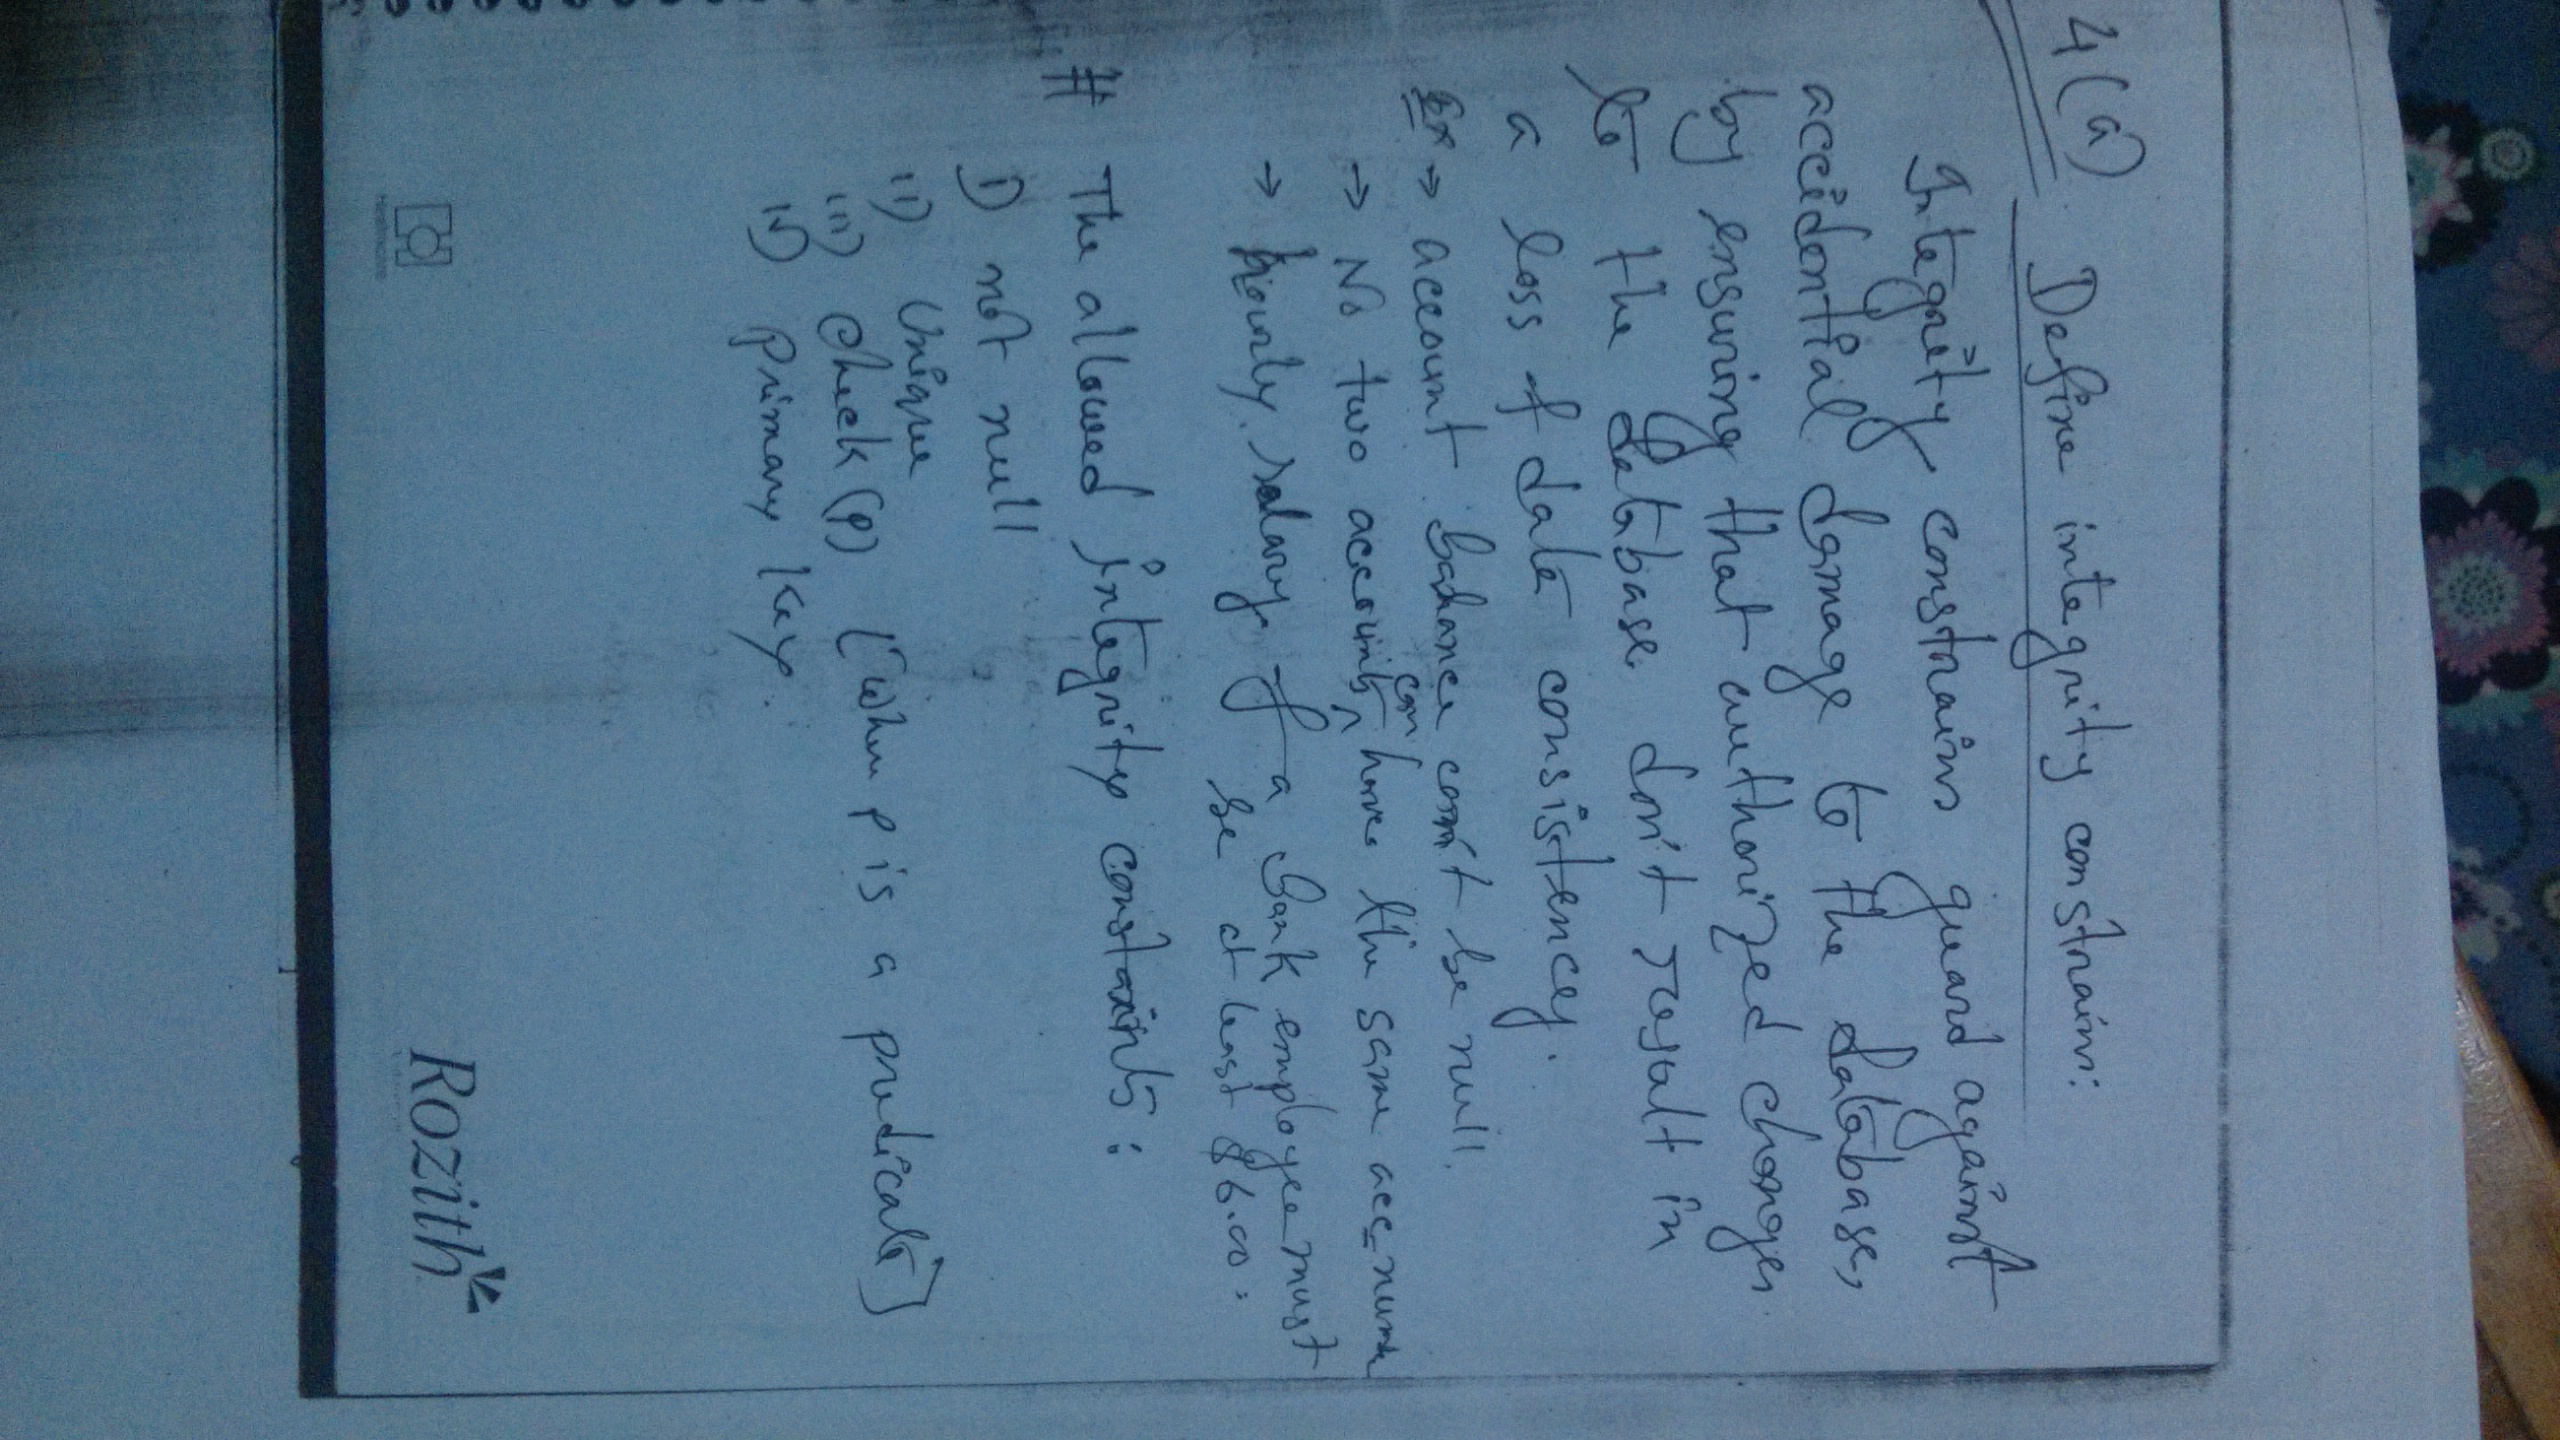 4(a) Define integrity constrain:
Integrity constrains guard against
accidential damage to the database,
by ensuring that authorized changes
to the database don't result in
a loss of data consistency.
Ex → account balance can't be null.
→ No two accounts can have the same acc_num
→ hourly salary of a bank employee must
be at least $6.00:
# The allowed integrity constaints:
i) not null
ii) Unique
iii) check (p) [when p is a predicate]
iv) Primary key.
Rozith